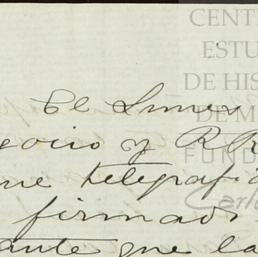 CENT
ESTU
DE HIS
DE M
FUND
Carlo
El Lunes
gocio y R R
ue telegrafi
firmado
ante que la